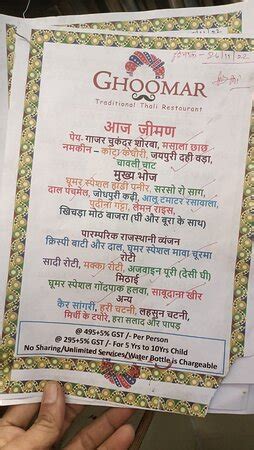 GHOOMAR
Traditional Thali Restaurant
आज जीमण
पेय- गाजर चुकंदर शोरबा, मसाला छाछ
नमकीन – कांटा कचोरी, जयपुरी दही वड़ा,
चावली चाट
मुख्य भोज
घूमर स्पेशल हांडी पनीर, सरसो रो साग,
दाल पंचमेल, जोधपुरी कढ़ी, आलू टमाटर रसावाला,
पुदीना गट्टा, लेमन राइस,
खिचड़ा मोठ बाजरा (घी और बूरा के साथ)
पारम्परिक राजस्थानी व्यंजन
क्रिस्पी बाटी और दाल, घूमर स्पेशल मावा चूरमा
रोटी
सादी रोटी, मक्का रोटी, अजवाइन पूरी (देसी घी)
मिठाई
घूमर स्पेशल गोंदपाक हलवा, साबूदाना खीर
अन्य
कैर सांगरी, हरी चटनी, लहसुन चटनी,
मिर्ची के टपोरे, हरा सलाद और पापड़
@ 495+5% GST /- Per Person
@ 295+5% GST /- For 5 Yrs to 10Yrs Child
No Sharing/Unlimited Services/Water Bottle is Chargeable